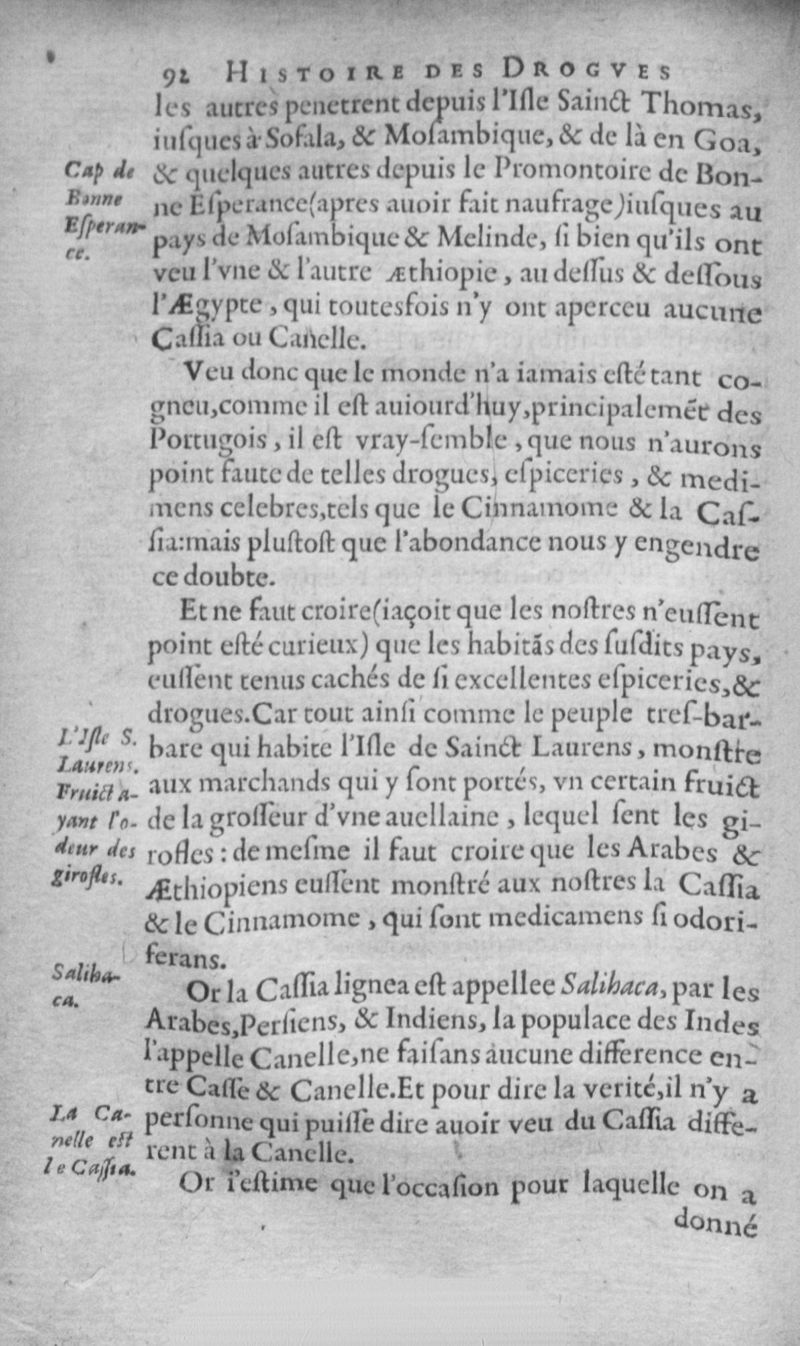 92 HISTOIRE DES DROGVES
les autres penetrent depuis l'Iſle Sainct Thomas,
iuſques à Sofala, & Moſambique, & de là en Goa,
Cap de
Bonne
Eſperan-
ce.
& quelques autres depuis le Promontoire de Bon-
ne Eſperance(apres auoir fait naufrage)iuſques au
pays de Moſambique & Melinde, ſi bien qu'ils ont
veu l'vne & l'autre Æthiopie, au deſſus & deſſous
l'Ægypte, qui toutesfois n'y ont aperceu aucune
Caſſia ou Canelle.
Veu donc que le monde n'a iamais eſté tant co-
gneu,comme il eſt auiourd'huy,principalemẽt des
Portugois, il eſt vray-ſemble, que nous n'aurons
point faute de telles drogues, eſpiceries, & medi-
mens celebres,tels que le Cinnamome & la Caſ-
ſia:mais pluſtoſt que l'abondance nous y engendre
ce doubte.
Et ne faut croire(iaçoit que les noſtres n'euſſent
point eſté curieux) que les habitãs des ſuſdits pays,
euſſent tenus cachés de ſi excellentes eſpiceries,&
drogues.Car tout ainſi comme le peuple treſ-bar-
L'Iſle S.
Laurens.
Fruict a-
yant l'o-
deur des
girofles.
bare qui habite l'Iſle de Sainct Laurens, monſtre
aux marchands qui y ſont portés, vn certain fruict
de la groſſeur d'vne auellaine, lequel ſent les gi-
rofles: de meſme il faut croire que les Arabes &
Æthiopiens euſſent monſtré aux noſtres la Caſſia
& le Cinnamome, qui ſont medicamens ſi odori-
ferans.
Saliha-
ca.
Or la Caſſia lignea eſt appellee Salihaca, par les
Arabes,Perſiens, & Indiens, la populace des Indes
l'appelle Canelle,ne faiſans aucune difference en-
tre Caſſe & Canelle.Et pour dire la verité,il n'y a
La Ca-
nelle eſt
le Caſſia.
perſonne qui puiſſe dire auoir veu du Caſſia diffe-
rent à la Canelle.
Or i'eſtime que l'occaſion pour laquelle on a
donné